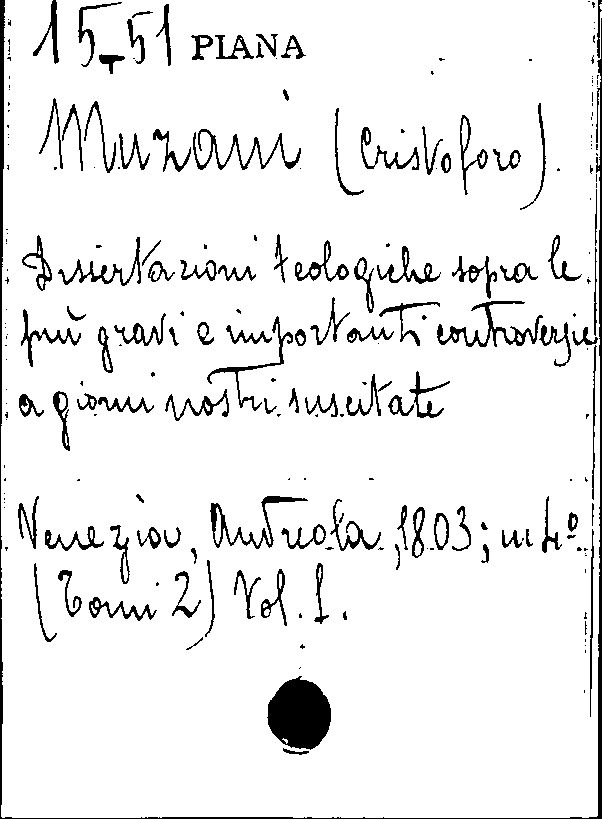 15-51 PIANA
Muzani (Cristoforo)
Dissertazioni teologiche sopra le
più gravi e importanti controversie
a giorni nostri suscitate
Venezia, Andreola, 1803; in 4º
(Tomi 2) Vol. 1.